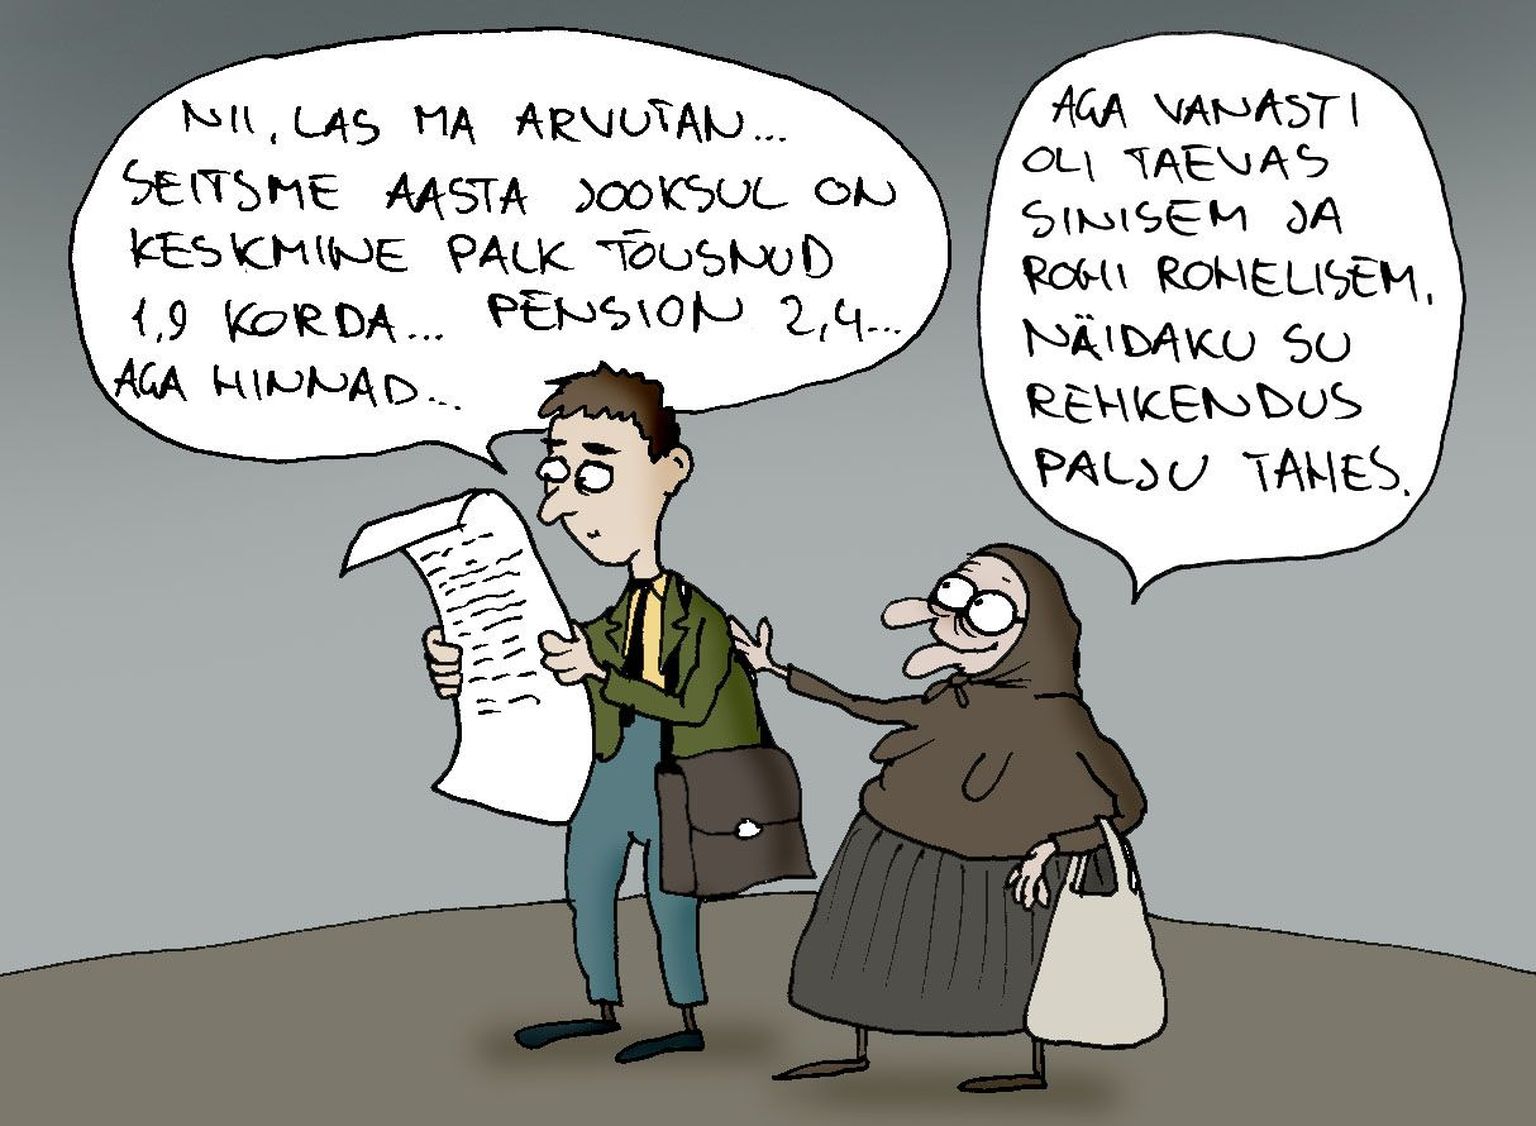 NII, LAS MA ARVUTAN...
SEITSME AASTA JOOKSUL ON
KESKMINE PALK TÕUSNUD
1,9 KORDA... PENSION 2,4...
AGA HINNAD...
AGA VANASTI
OLI TAEVAS
SINISEM JA
ROHI ROHELISEM.
NÄIDAKU SU
REHKENDUS
PALJU TAHES.